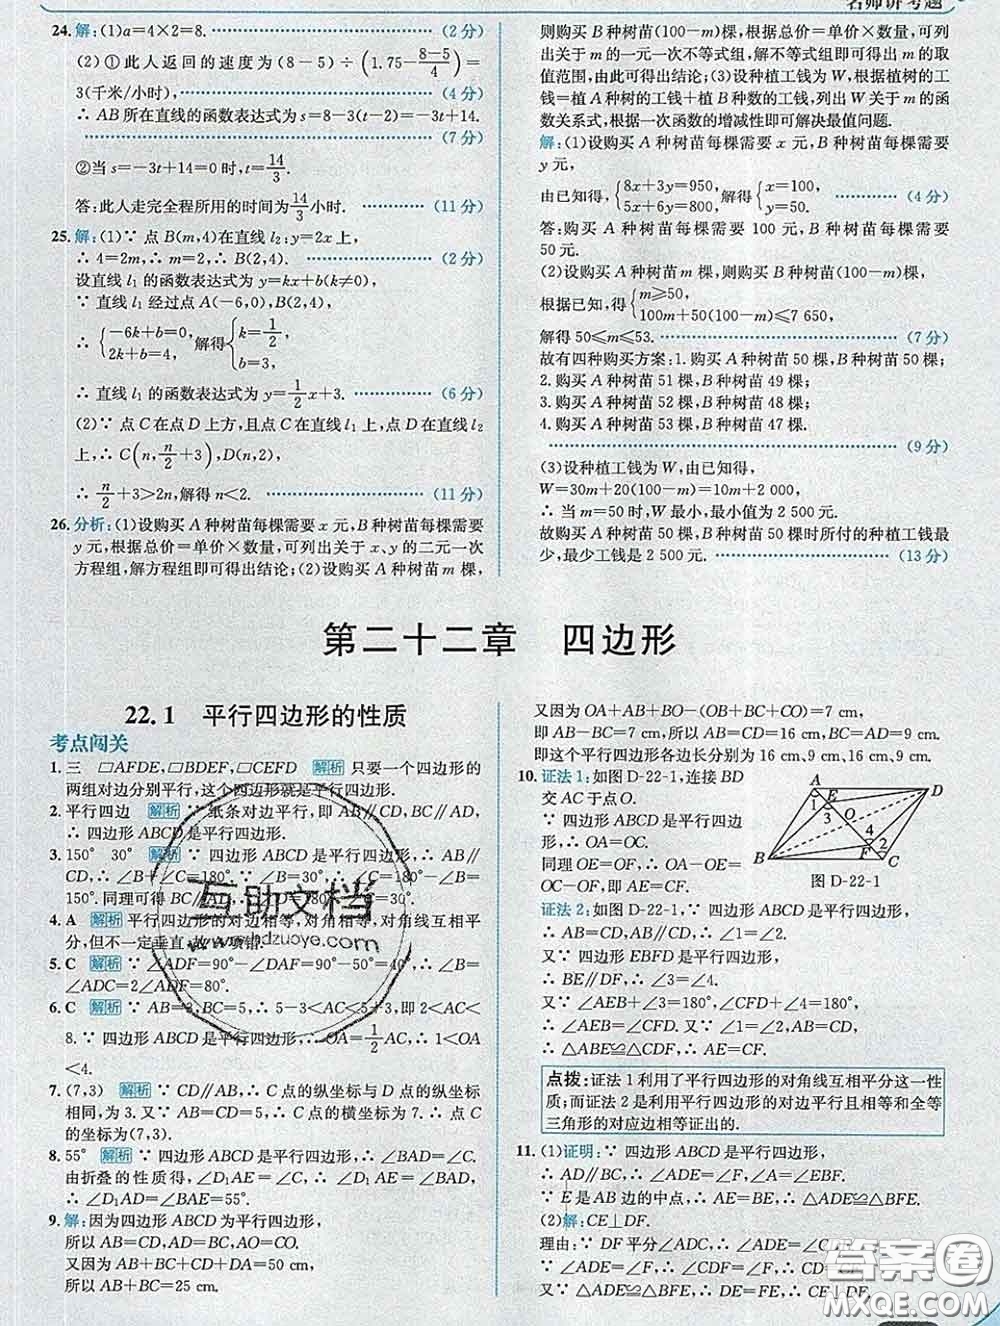 名师讲考题
24. 解:(1)a=4×2=8. (2分)
(2)①此人返回的速度为(8-5)÷(1.75-(8-5)/4)=
3(千米/小时), (4分)
∴AB所在直线的函数表达式为s=8-3(t-2)=-3t+14.
(7分)
②当s=-3t+14=0时,t=14/3.
答:此人走完全程所用的时间为14/3小时. (11分)
25. 解:(1)∵点B(m,4)在直线l₂:y=2x上,
∴4=2m,∴m=2,∴B(2,4). (2分)
设直线l₁的函数表达式为y=kx+b(k≠0)
∵直线l₁经过点A(-6,0),B(2,4),
∴{-6k+b=0, 2k+b=4, 解得{k=1/2, b=3.
∴直线l₁的函数表达式为y=1/2x+3. (6分)
(2)∵点C在点D上方,且点C在直线l₁上,点D在直线l₂
上,∴C(n,n/2+3),D(n,2n),
∴n/2+3>2n,解得n<2. (11分)
26. 分析:(1)设购买A种树苗每棵需要x元,B种树苗每棵需要
y元,根据总价=单价×数量,可列出关于x,y的二元一次
方程组,解方程组即可得出结论;(2)设购买A种树苗m棵,
则购买B种树苗(100-m)棵,根据总价=单价×数量,可列
出关于m的一元一次不等式组,解不等式组即可得出m的
取值范围,由此可得出结论;(3)设种植工钱为W,根据植树的工
钱=植A种树的工钱+植B种数的工钱,列出W关于m的
函数关系式,根据一次函数的增减性即可解决最值问题.
解:(1)设购买A种树苗每棵需要x元,B种树苗每棵需要
y元,
由已知得,{8x+3y=950, 5x+6y=800, 解得{x=100, y=50. (4分)
答:购买A种树苗每棵需要100元,B种树苗每棵需要
50元.
(2)设购买A种树苗m棵,则购买B种树苗(100-m)棵,
根据已知,得{m≥50, 100m+50(100-m)≤7 650,
解得50≤m≤53. (7分)
故有四种购买方案:1.购买A种树苗50棵,B种树苗50棵;
2.购买A种树苗51棵,B种树苗49棵;
3.购买A种树苗52棵,B种树苗48棵;
4.购买A种树苗53棵,B种树苗47棵.
(9分)
(3)设种植工钱为W,由已知得,
W=30m+20(100-m)=10m+2 000,
∴当m=50时,W最小,最小值为2 500元.
故购买A种树苗50棵、B种树苗50棵时所付的种植工钱最
少,最少工钱是2 500元. (13分)
第二十二章 四边形
22.1 平行四边形的性质
考点闯关
1. 三 □AFDE,□BDEF,□CEFD 解析 只要一个四边形的
两组对边分别平行,这个四边形就是平行四边形.
2. 平行四边 解析 ∵纸条对边平行,即AB∥CD,BC∥AD,
∴四边形ABCD是平行四边形.
3. 150° 30° 解析 ∵四边形ABCD是平行四边形,∴AB∥
CD,∴∠B+∠C=180°.∵∠B=30°,∴∠C=180°-30°=
150°.同理可得BC∥AD,∠D=180°-150°=30°.
4. A 解析 平行四边形的对边相等,对角相等,对角线互相平
分,但不一定垂直,故A项错.
5. C 解析 ∵∠ADF=90°-∠DAF=90°-50°=40°,∴∠B=
∠ADC=2∠ADF=80°.
6. C 解析 ∵AB=3,BC=5,∴5-3<AC<5+3,即2<AC<
8.∵四边形ABCD是平行四边形,∴OA=1/2AC,∴1<OA
<4.
7. (7,3) 解析 ∵CD∥AB,∴C点的纵坐标与D点的纵坐标
相同,为3.又∵CD=AB=5,∴C点的横坐标为7.∴点C
的坐标为(7,3).
8. 55° 解析 ∵四边形ABCD是平行四边形,∴∠BAD=∠C.
由折叠的性质得,∠D₁AE=∠C,∴∠D₁AE=∠BAD,
∴∠D₁AD=∠BAE=55°.
9. 解:因为四边形ABCD为平行四边形,
所以AB=CD,AD=BC,AO=CO.
又因为AB+BC+CD+DA=50 cm,
所以AB+BC=25 cm.
又因为OA+AB+BO-(OB+BC+OC)=7 cm,
即AB-BC=7 cm,所以AB=CD=16 cm,BC=AD=9 cm.
即这个平行四边形各边长分别为16 cm、9 cm、16 cm、9 cm.
10. 证法1:如图D-22-1,连接BD
交AC于点O.
∵四边形ABCD是平行四边形,
∴OA=OC.
同理OE=OF,∴OA-OE=OC-OF,
即AE=CF.
A E D 1 3 O 4 2 F B C
图D-22-1
证法2:如图D-22-1,∵四边形ABCD是平行四边形,
∴AB=CD,AB∥CD,∴∠1=∠2.
又∵四边形EBFD是平行四边形,
∴BE∥DF,∴∠3=∠4.
又∵∠AEB+∠3=180°,∠CFD+∠4=180°,
∴∠AEB=∠CFD.又∵∠1=∠2,AB=CD,
∴△ABE≌△CDF,∴AE=CF.
点拨:证法1利用了平行四边形的对角线互相平分这一性
质;而证法2是利用平行四边形的对边平行且相等和全等
三角形的对应边相等证出的.
11. (1)证明:∵四边形ABCD是平行四边形,
∴AD∥BC,∴∠ADE=∠F,∠A=∠EBF.
∵E是AB的中点,∴AE=BE,∴△ADE≌△BFE.
(2)解:CE⊥DF.
理由:∵DF平分∠ADC,∴∠ADE=∠CDE.
∵∠ADE=∠F,∴∠CDE=∠F,∴CD=CF.
∵△ADE≌△BFE,∴DE=FE,∴CE⊥DF.
互助文档
www.hdzuoye.com
答案圈
MXQE.COM